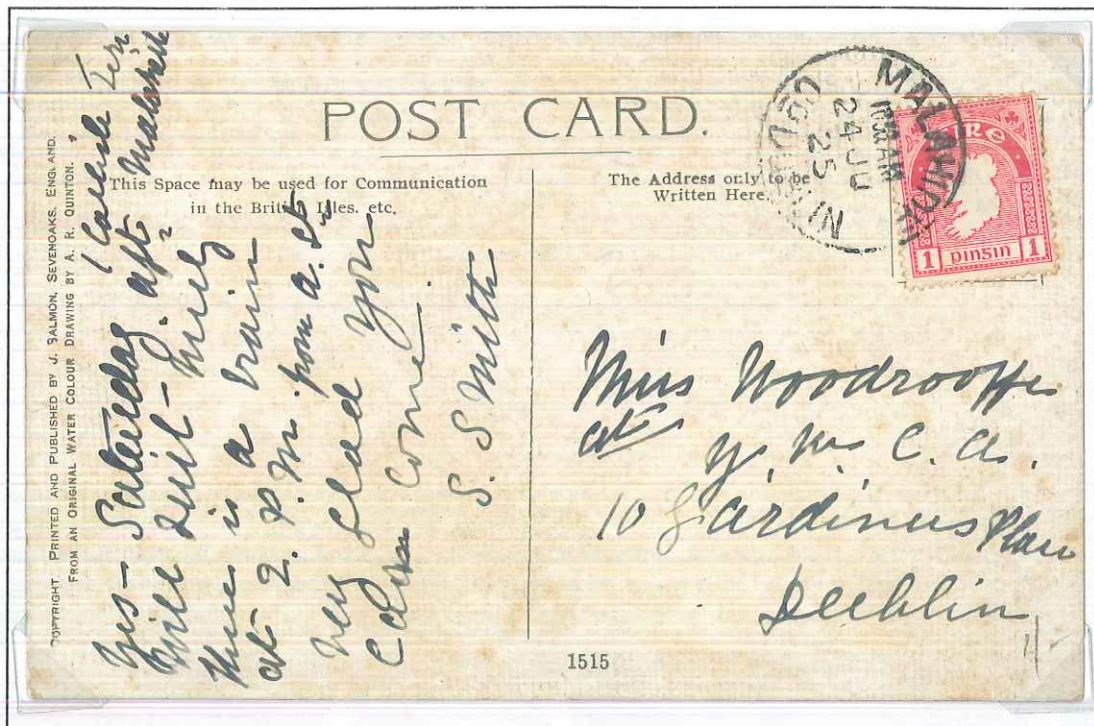 POST CARD.
This Space may be used for Communication
in the British Isles. etc.
The Address only to be
Written Here.
COPYRIGHT. PRINTED AND PUBLISHED BY J. SALMON, SEVENOAKS, ENGLAND.
FROM AN ORIGINAL WATER COLOUR DRAWING BY A. R. QUINTON.
Malahide
Yes - Saturday aft
Will suit - nicely
there is a train
at 2. P.M. from a. St
Very glad you
can come.
S. S Mitte
MALAHIDE
AM
24 JU
25
CO. DUBLIN
ÉIRE
1 pinsin 1
Miss Woodrooffe
at
Y. W. C. A.
10 Gardiners Place
Dublin
1515